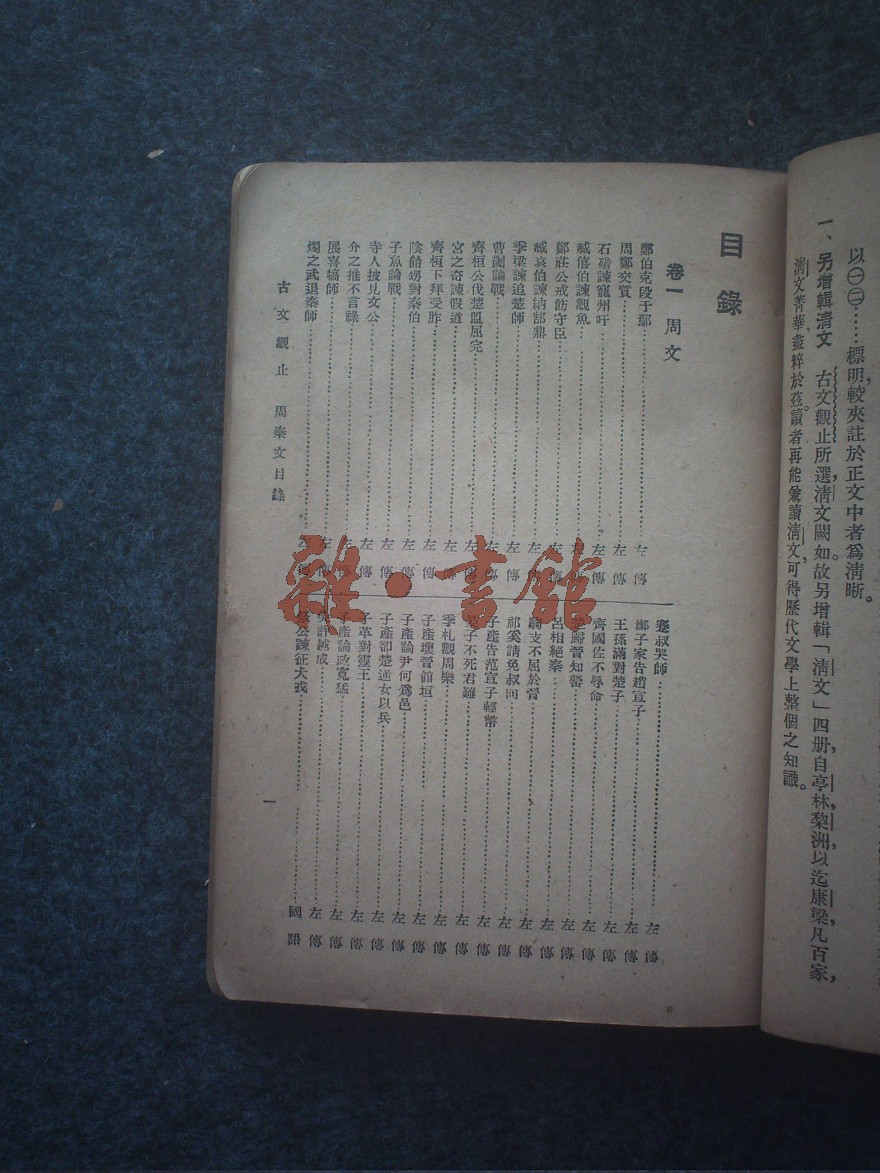 以㊀㊁……標明，較夾註於正文中者爲清晰。
一、另增輯清文　古文觀止所選，清文闕如。故另增輯「清文」四册，自亭林，黎洲，以迄康，梁，凡百家，
清文菁華，盡粹於茲。讀者再能彙讀清文，可得歷代文學上整個之知識。
目錄
卷一 周文
鄭伯克段于鄢……左傳
周鄭交質……左傳
石碏諫寵州吁……左傳
臧僖伯諫觀魚……左傳
鄭莊公戒飭守臣……左傳
臧哀伯諫納郜鼎……左傳
季梁諫追楚師……左傳
曹劌論戰……左傳
齊桓公伐楚盟屈完……左傳
宮之奇諫假道……左傳
齊桓下拜受胙……左傳
陰飴甥對秦伯……左傳
子魚論戰……左傳
寺人披見文公……左傳
介之推不言祿……左傳
展喜犒師……左傳
燭之武退秦師……左
蹇叔哭師……左傳
鄭子家告趙宣子……左傳
王孫滿對楚子……左傳
齊國佐不辱命……左傳
歸晉知罃……左傳
呂相絕秦……左傳
駒支不屈於晉……左傳
祁奚請免叔向……左傳
子產告范宣子輕幣……左傳
子不死君難……左傳
季札觀周樂……左傳
子產壞晉館垣……左傳
子產論尹何爲邑……左傳
子產卻楚逆女以兵……左傳
子革對靈王……左傳
子產論政寬猛……左傳
吳許越成……左傳
公諫征犬戎……國語
古文觀止 周秦文目錄
一
雜·書館